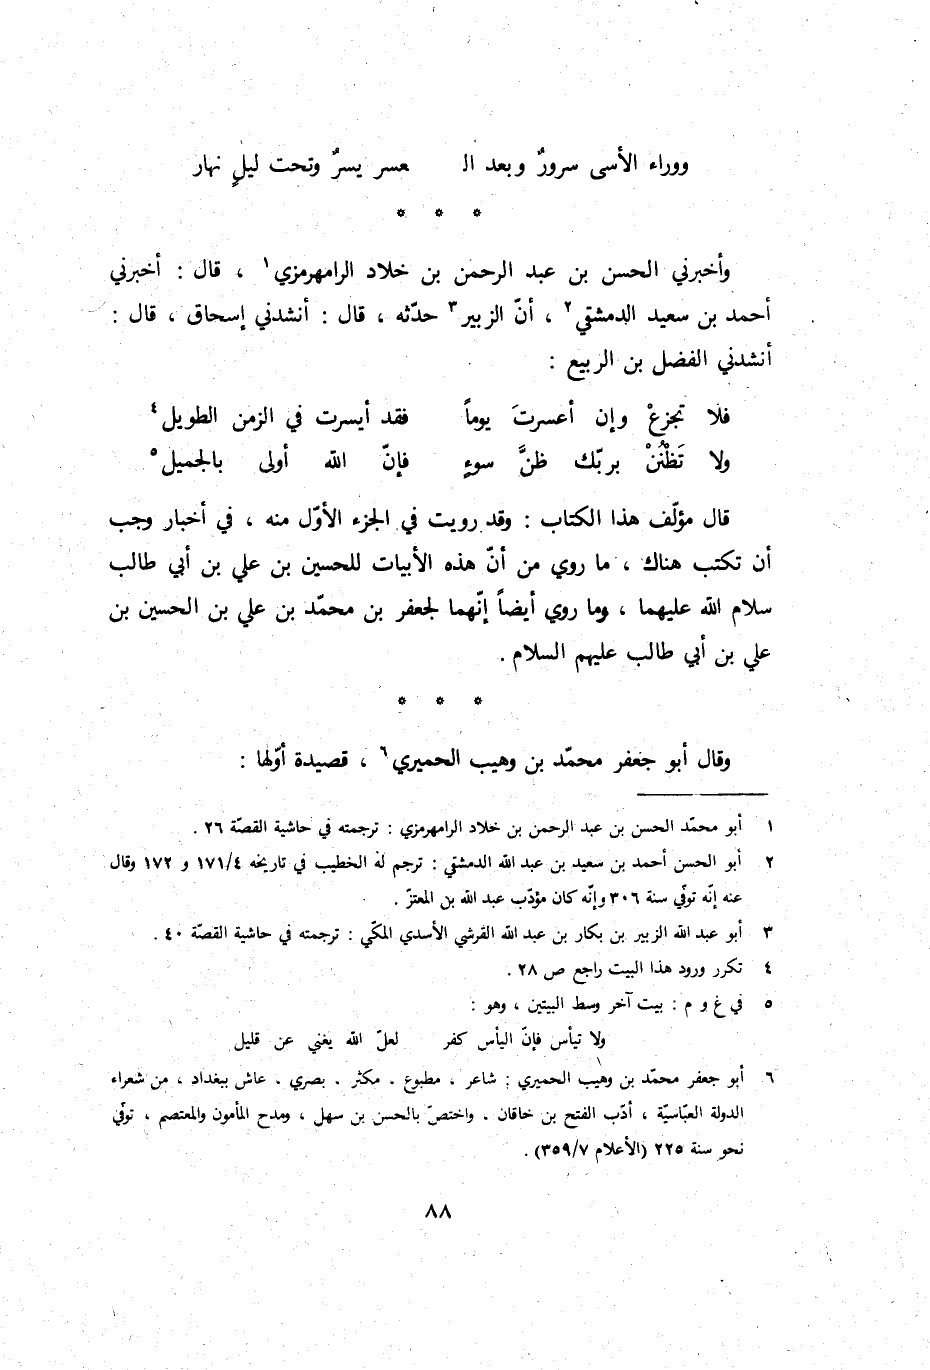 ووراء الأسى سرورٌ وبعد الـ عسر يسرٌ وتحت ليلٍ نهار
* * *
وأخبرني الحسن بن عبد الرحمن بن خلاد الرامهرمزي١ ، قال : أخبرني
أحمد بن سعيد الدمشقي٢ ، أنّ الزبير٣ حدّثه ، قال : أنشدني إسحاق ، قال :
أنشدني الفضل بن الربيع :
فلا تجزعْ وإن أعسرتَ يوماً فقد أيسرت في الزمن الطويل٤
ولا تَظْنُنْ بربّك ظنَّ سوءٍ فإنّ الله أولى بالجميل٥
قال مؤلّف هذا الكتاب : وقد رويت في الجزء الأوّل منه ، في أخبار وجب
أن تكتب هناك ، ما روي من أنّ هذه الأبيات للحسين بن علي بن أبي طالب
سلام الله عليهما ، وما روي أيضاً إنّهما لجعفر بن محمّد بن علي بن الحسين بن
علي بن أبي طالب عليهم السلام .
* * *
وقال أبو جعفر محمّد بن وهيب الحميري٦ ، قصيدة أوّلها :
١ أبو محمّد الحسن بن عبد الرحمن بن خلاد الرامهرمزي : ترجمته في حاشية القصّة ٢٦ .
٢ أبو الحسن أحمد بن سعيد بن عبد الله الدمشقي : ترجم له الخطيب في تاريخه ١٧١/٤ و ١٧٢ وقال
عنه إنّه توفّي سنة ٣٠٦ وإنّه كان مؤدّب عبد الله بن المعتزّ .
٣ أبو عبد الله الزبير بن بكار بن عبد الله القرشي الأسدي المكّي : ترجمته في حاشية القصّة ٤٠ .
٤ تكرر ورود هذا البيت راجع ص ٢٨ .
٥ في غ و م : بيت آخر وسط البيتين ، وهو :
ولا تيأس فإنّ اليأس كفر لعلّ الله يغني عن قليل
٦ أبو جعفر محمّد بن وهيب الحميري : شاعر ، مطبوع . مكثر . بصري . عاش ببغداد ، من شعراء
الدولة العبّاسيّة ، أدّب الفتح بن خاقان . واختصّ بالحسن بن سهل ، ومدح المأمون والمعتصم ، توفّي
نحو سنة ٢٢٥ (الأعلام ٣٥٩/٧) .
٨٨